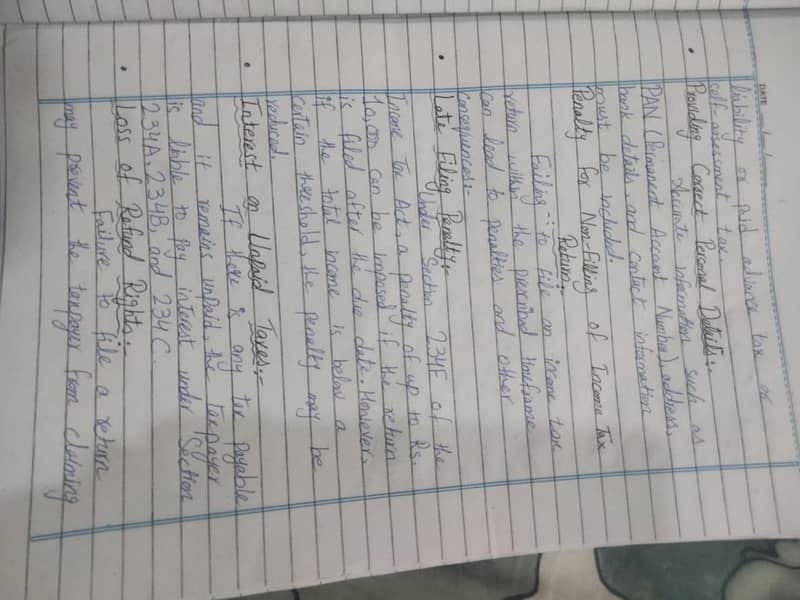 DATE
liability or paid advance tax or
self-assessment tax.
• Providing Correct Personal Details:-
Accurate information such as
PAN (Permanent Account Number), address,
bank details and contact information
must be included.
Penalty for Non-Filling of Income Tax
Return:-
Failing to file an income tax
return within the
can lead to penalties and other
consequences:-
• Late Filing Penalty:-
Under Section 234F of the
Income Tax Act, a penalty of up to Rs.
10,000 can be imposed if the return
is filed after the due date. However,
if the total income is below a
certain threshold, the penalty may be
reduced.
• Interest on Unpaid Taxes:-
If there is any tax payable
and it remains unpaid, the taxpayer
is liable to pay interest under Section
234A, 234B and 234C.
• Loss of Refund Rights:-
Failure to file a return
may prevent the taxpayer from claiming